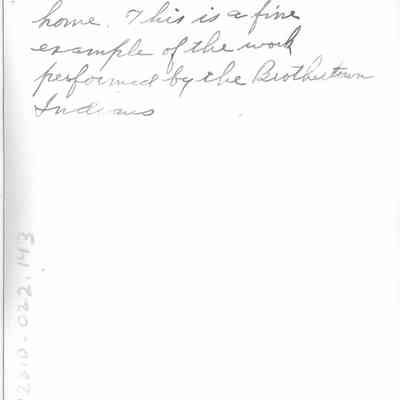 home. This is a fine
example of the work
performed by the Brothertown
Indians
2010.022.143